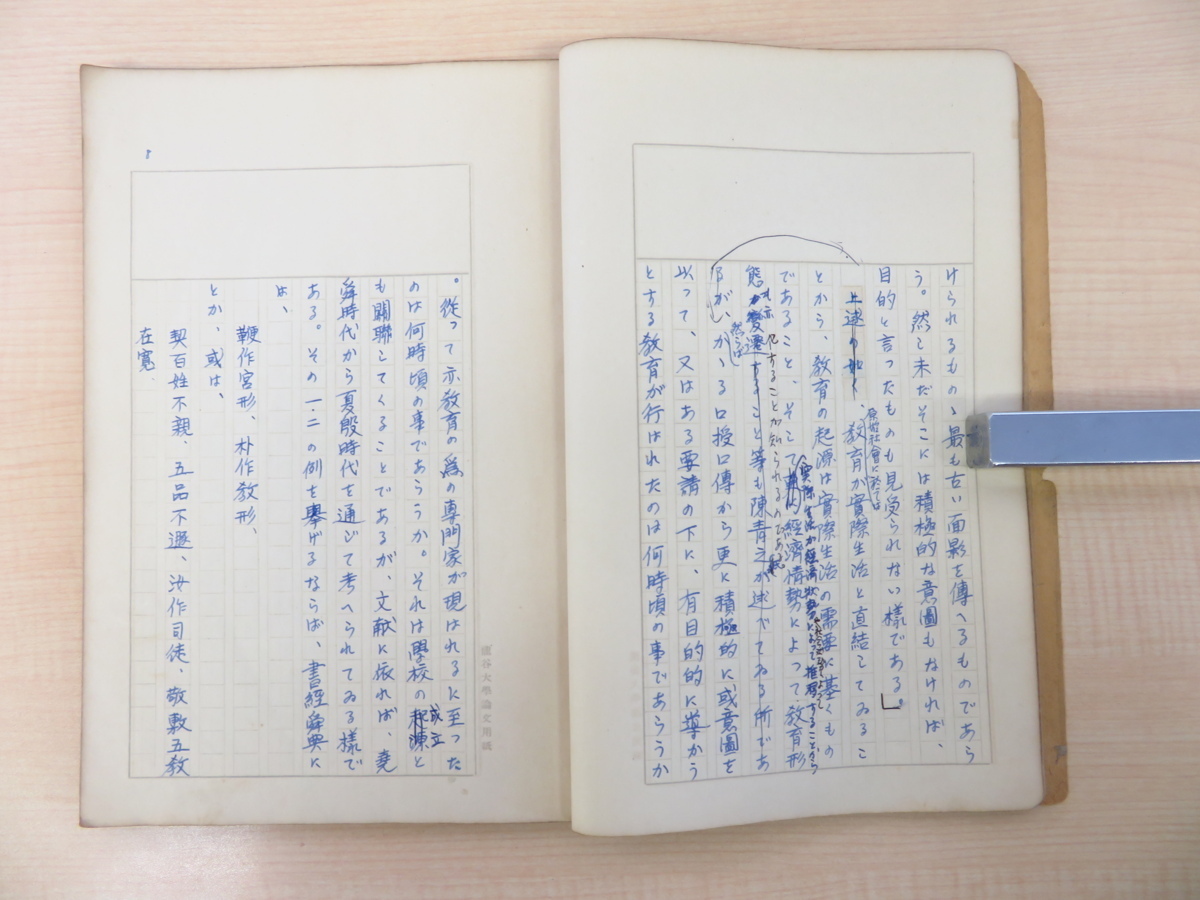 けられるものゝ最も古い面影を傳へるものであら
う。然し未だそこには積極的な意圖もなければ、
目的と言ったものも見受られない様である。
上述の如く、教育が實際生活と直結してゐるこ
原始社會に於ては
とから、教育の起源は實際生活の需要に基くもの
であること、そして経濟情勢によって教育形
實際生活が経濟状勢によって推移することから
態が変遷すること等も陳青之が述べてゐる所であ
化することが知られるのである
然らば
るがかゝる口授口傳から更に積極的に或意圖を
以って、又はある要請の下に、有目的的に導かう
とする教育が行はれたのは何時頃の事であらうか
。従って亦教育の為の専門家が現はれるに至った
のは何時頃の事であらうか。それは學校の起源と
成立
も關聯してくることであるが、文献に依れば、堯
舜時代から夏殷時代を通じて考へられてゐる様で
ある。その一、二の例を擧げるならば、書經舜典に
は、
鞭作官形、朴作教形、
とか、或は、
契百姓不親、五品不遜、汝作司徒、敬敷五教
在寛.
龍谷大學論文用紙